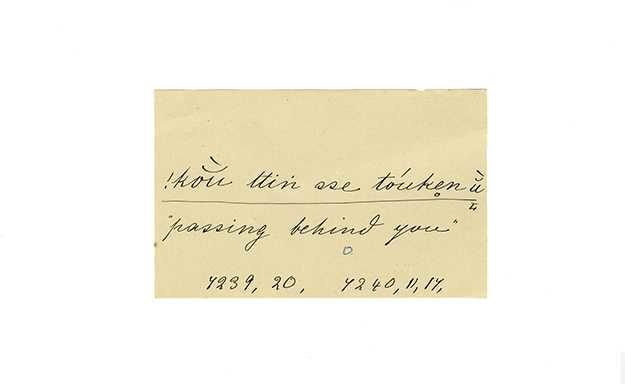 !kõ̀u ttiń sse tóuken̥ ù
"passing behind you"
7239, 20, 7240, 11, 17,